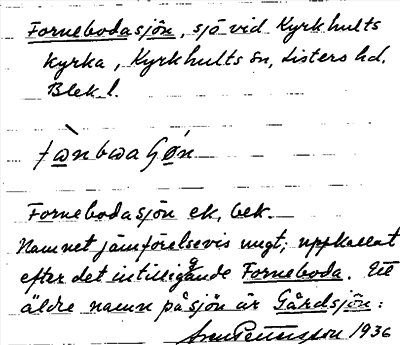 Fornebodasjön, sjö vid Kyrkhults
kyrka, Kyrkhults sn, Listers hd,
Blek. l.
Fornebodasjön ek, bek.
Namnet jämförelsevis ungt; uppkallat
efter det intilliggande Forneboda. Ett
äldre namn på sjön är Gårdsjön:
1936